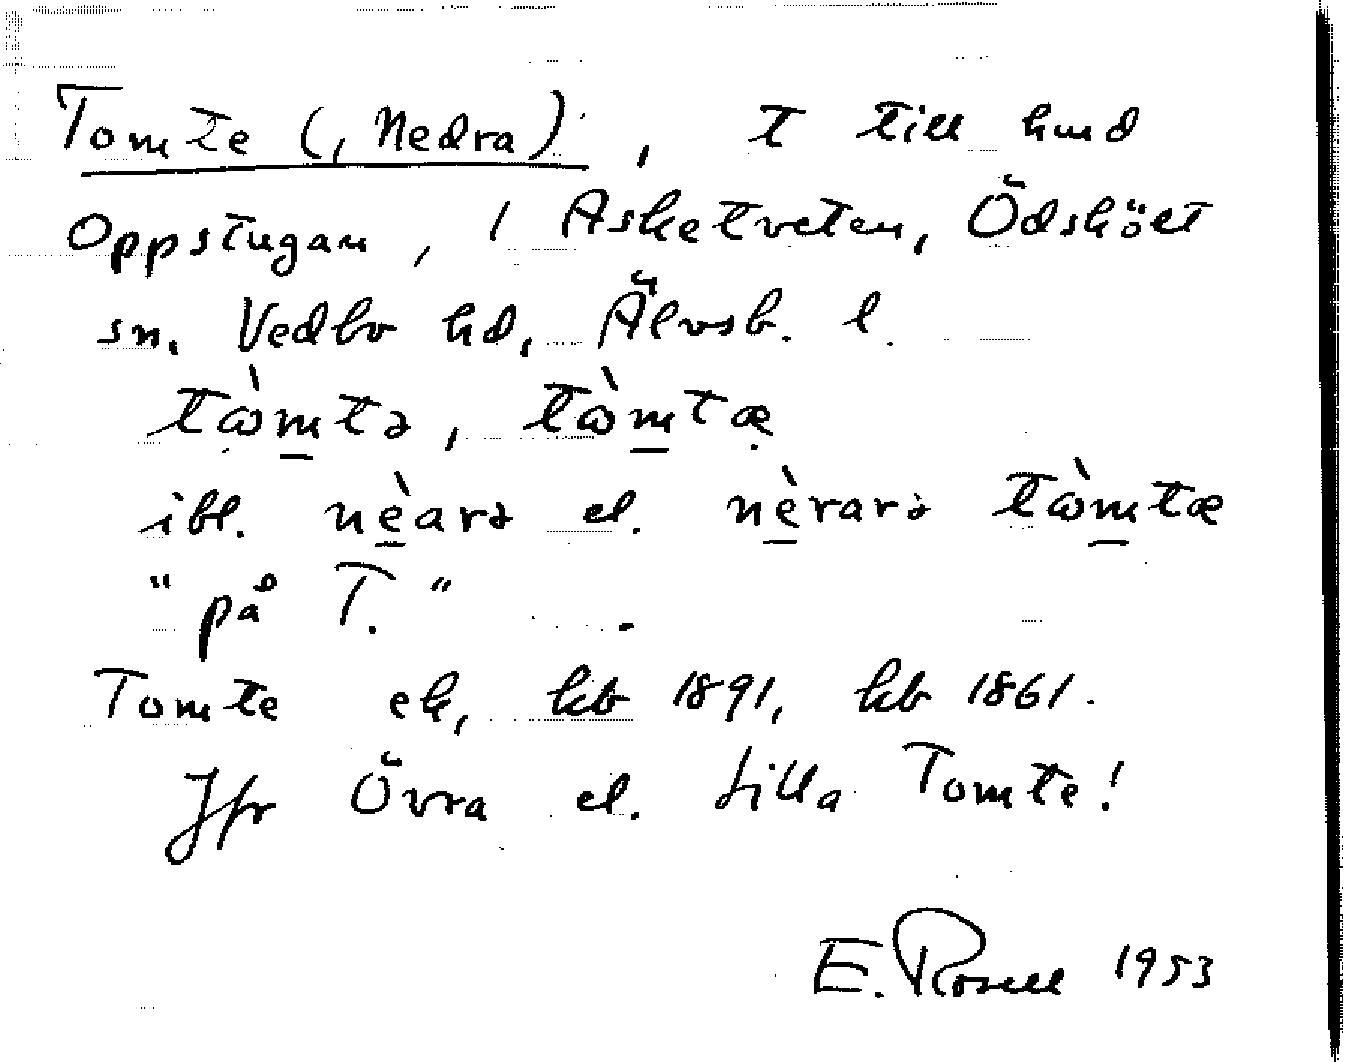 Tomte (, Nedra), t till hmd
Oppstugan, 1 Asketveten, Ödsköet
sn, Vedbo hd, Älvsb. l.
tὼmtə, tὼmtæ
ibl. nèarə el. nèrarə tὼmtæ
"på T."
Tomte ek, kb 1891, kb 1861.
Jfr Övra el. Lilla Tomte!
E. Rosell 1953